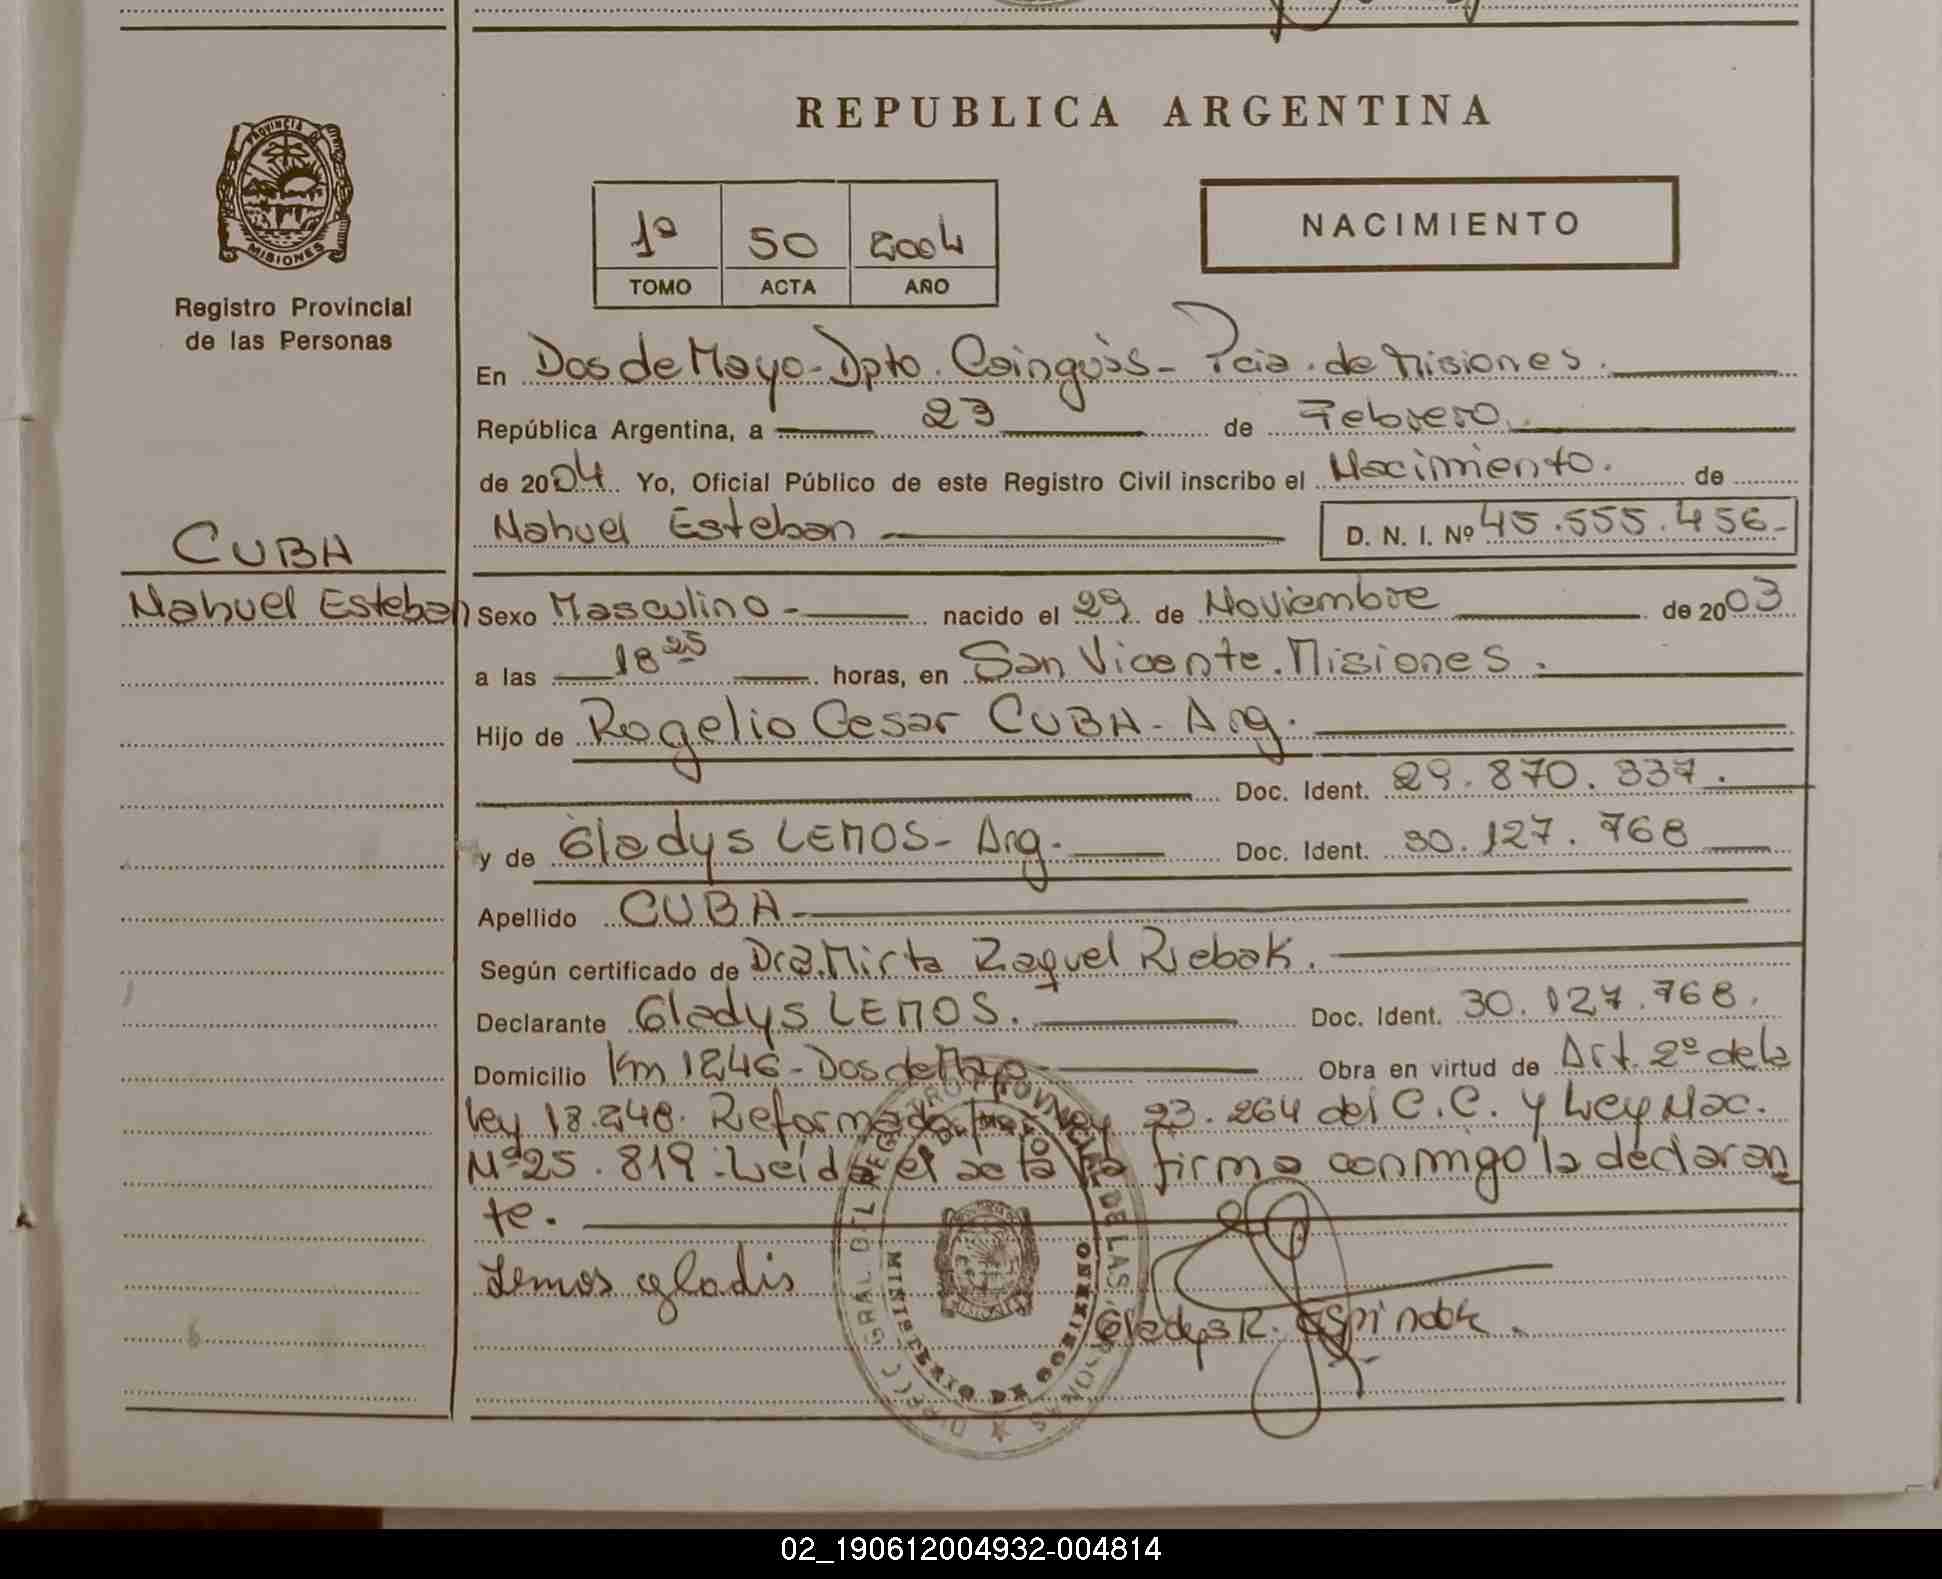 REPUBLICA ARGENTINA
PROVINCIA DE
MISIONES
Registro Provincial
de las Personas
1º 50 2004
TOMO ACTA AÑO
NACIMIENTO
En Dos de Mayo - Dpto. Cainguàs - Pcia. de Misiones.
República Argentina, a 23 de Febrero
de 2004. Yo, Oficial Público de este Registro Civil inscribo el Nacimiento. de
Nahuel Esteban D. N. I. Nº 45.555.456-
CUBA
Nahuel Esteban
Sexo Masculino - nacido el 29 de Noviembre de 2003
a las 18 25 horas, en San Vicente. Misiones.
Hijo de Rogelio Cesar CUBA - Arg.
Doc. Ident. 29.870.337.
y de Gladys LEMOS - Arg. Doc. Ident. 30.127.768
Apellido CUBA
Según certificado de Dra. Mirta Raquel Rebak.
Declarante Gladys LEMOS. Doc. Ident. 30.127.768.
Domicilio Km 1246 - Dos de Mayo Obra en virtud de Art. 2º de la
ley 18.248. Reformada por Ley 23.264 del C.C. y Ley Nac.
Nº 25.819. Leída el acta la firma conmigo la declaran
te.
Lemos gladis
Gladys R. Espindola.
MINISTERIO DE GOBIERNO
02_190612004932-004814